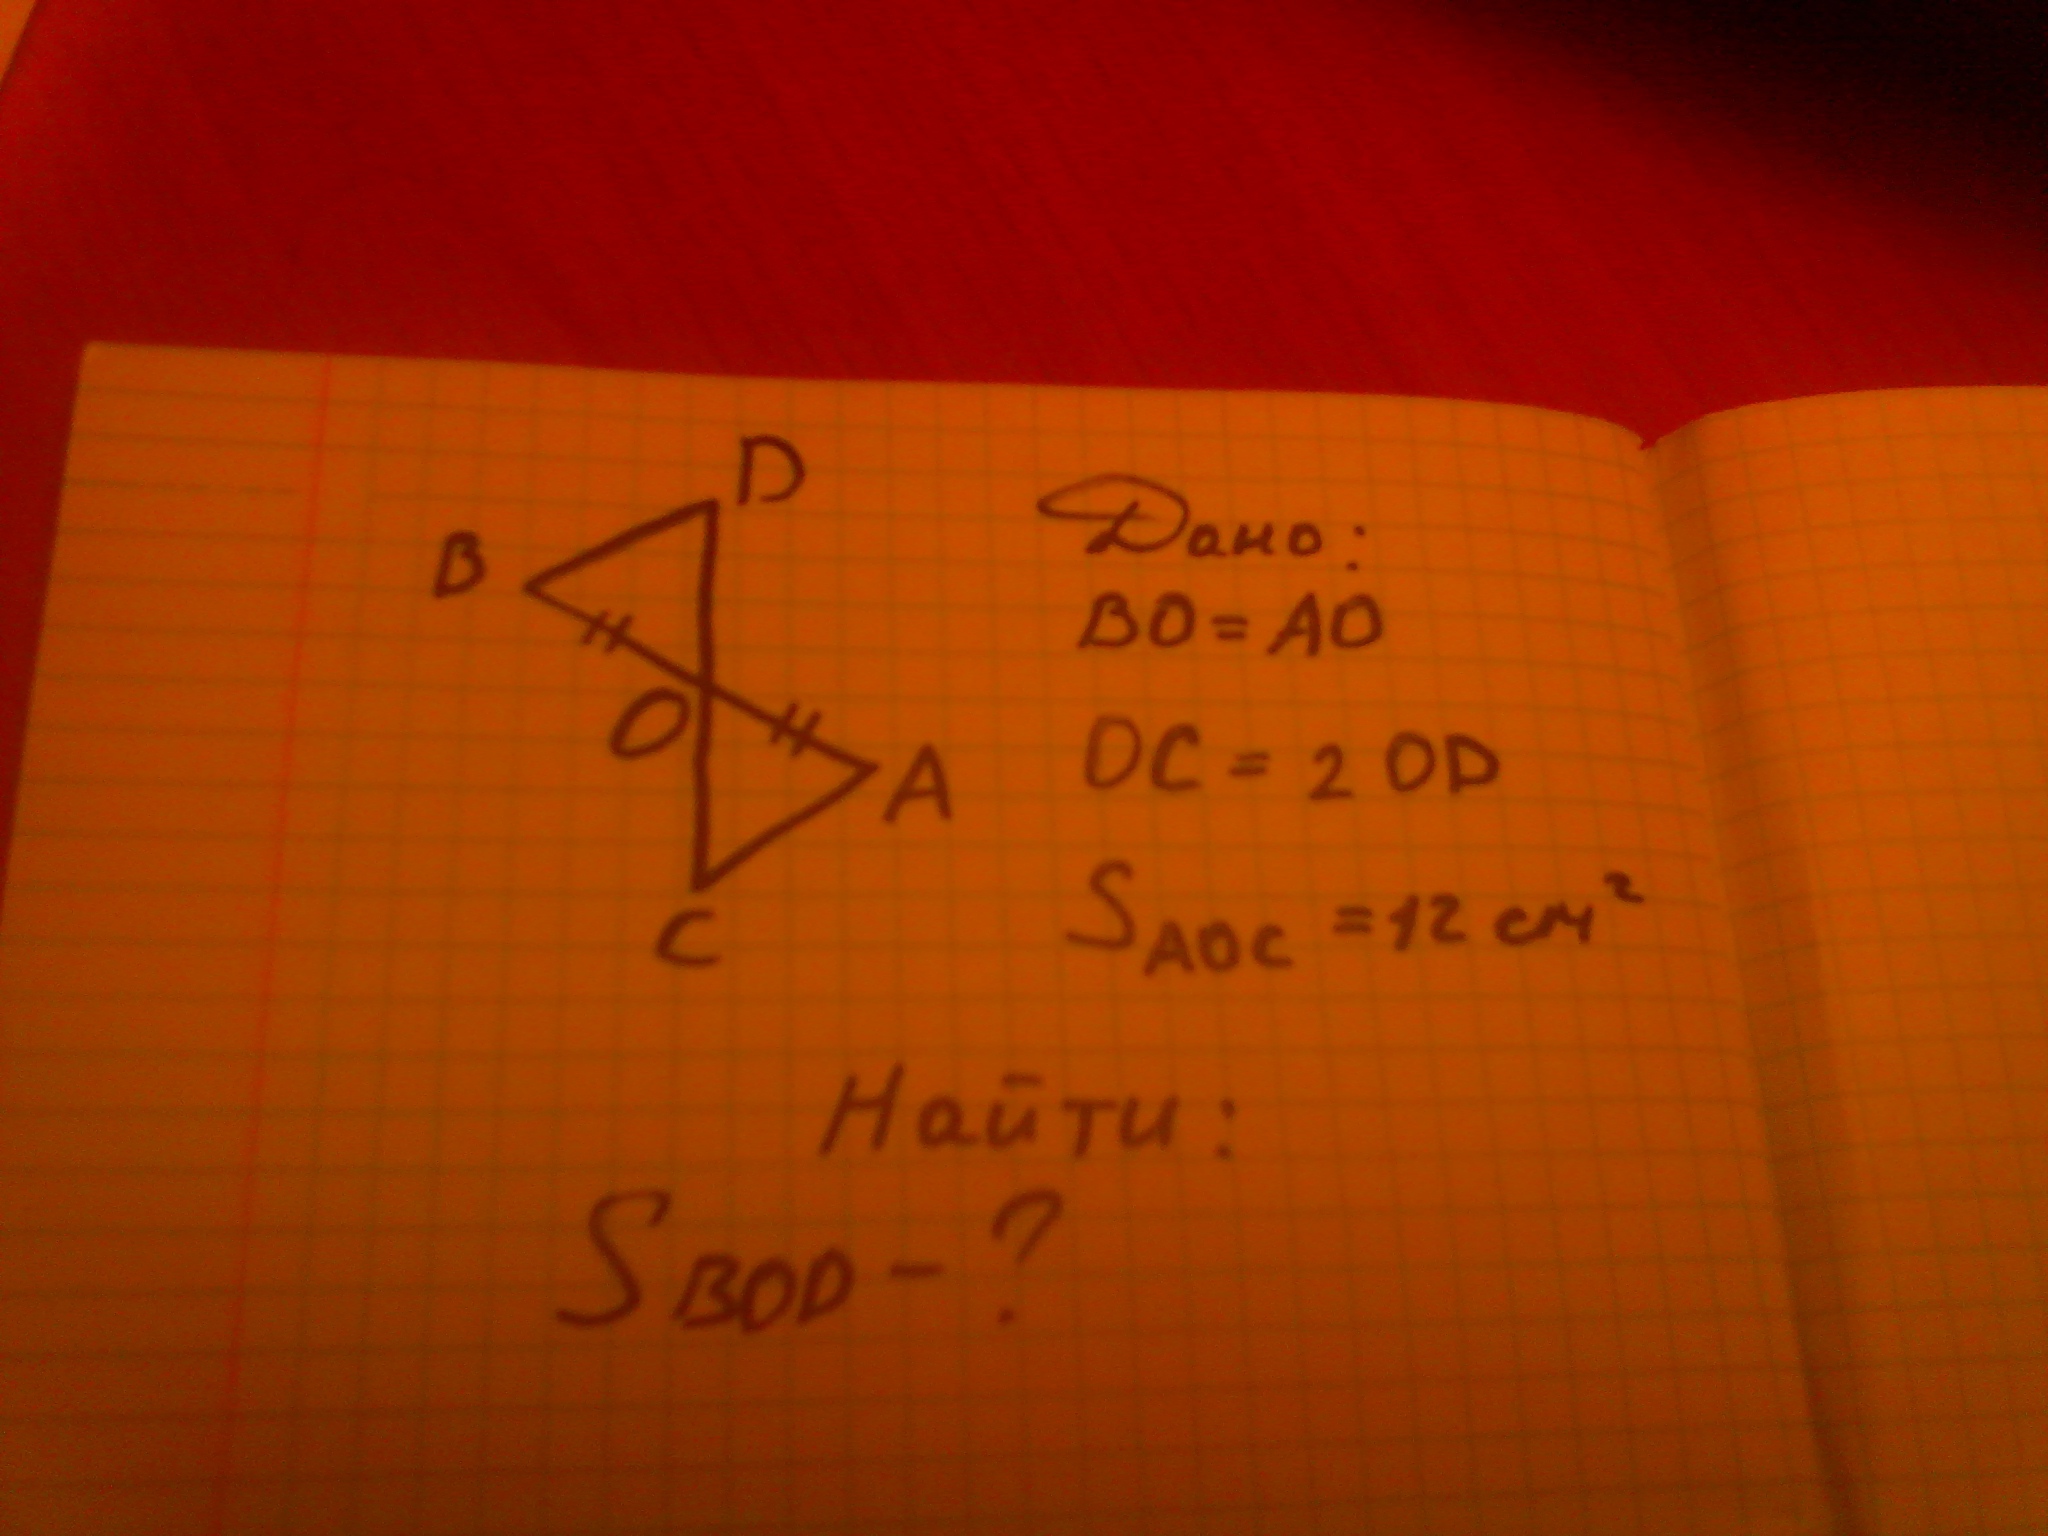 D
B
O
A
C
Дано:
BO = AO
OC = 2 OD
S AOC = 12 см²
Найти:
S BOD - ?